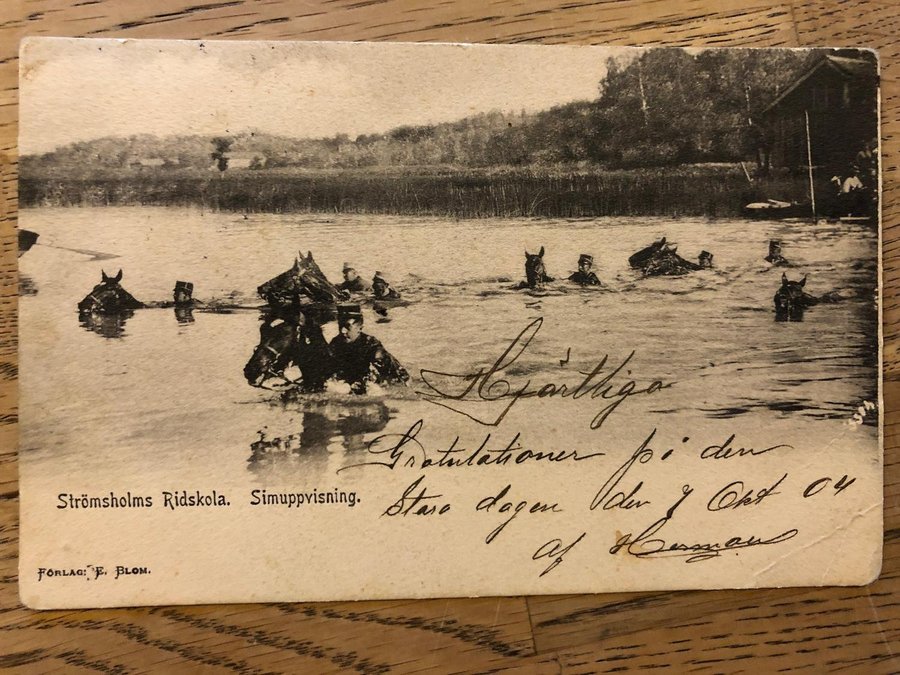 Hjärtliga
Gratulationer på den
Strömsholms Ridskola. Simuppvisning.
Stora dagen den 7 Okt 04
af Herman
FÖRLAG: E. BLOM.